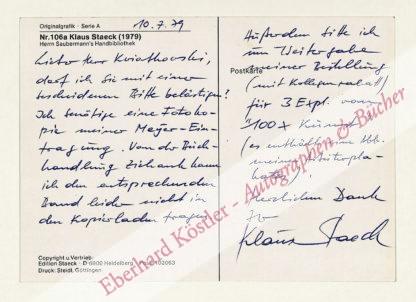 Originalgrafik · Serie A
10.7.79
Nr.106a Klaus Staeck (1979)
Herrn Saubermann's Handbibliothek
Lieber Herr Kwiatkowski,
darf ich Sie mit einer
bescheidenen Bitte belästigen?
Ich benötige eine Fotoko-
pie meiner Meyer-Ein-
tragung. Von der Buch-
handlung Ziehank kann
ich den entsprechenden
Band leider nicht in
den Kopierladen tragen
Copyright u. Vertrieb:
Edition Staeck · D 6900 Heidelberg · Postf. 102063
Druck: Steidl, Göttingen
Postkarte
Außerdem bitte ich
um Weitergabe
meiner Bestellung
(mit Kollegenrabatt)
für 3 Expl. von
100 x
(es enthält eine Abb.
meiner
Herzlichen Dank
Ihr
Klaus Staeck
Eberhard Köstler - Autographen & Bücher